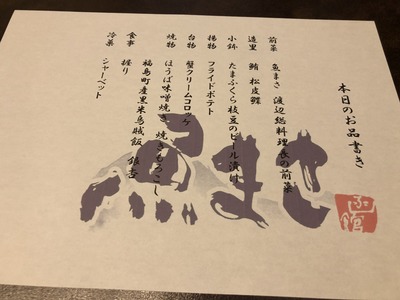 本日のお品書き
前菜 魚まさ 渡辺総料理長の前菜
造里 鮪 松皮鰈
小鉢 たまふくら枝豆のビール漬け
揚物 フライドポテト
台物 蟹クリームコロッケ
焼物 ほうば味噌焼き 焼きもろこし
食事 握り
福島町産黒米烏賊飯 銀杏
冷菓 シャーベット
魚まさ